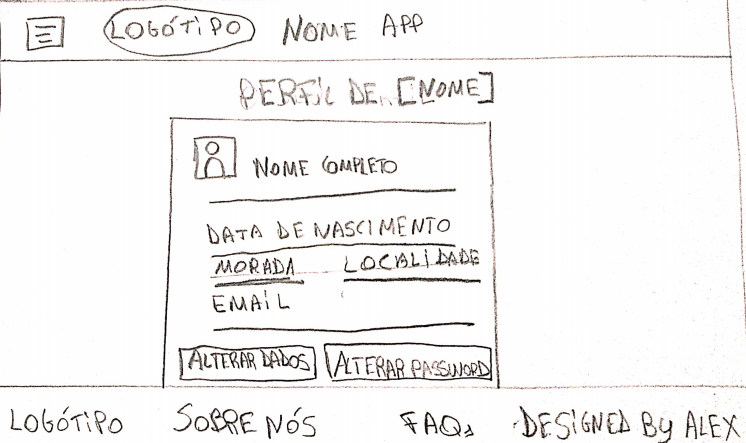 LOGÓTIPO NOME APP
PERFIL DE [NOME]
NOME COMPLETO
DATA DE NASCIMENTO
MORADA LOCALIDADE
EMAIL
ALTERAR DADOS ALTERAR PASSWORD
LOGÓTIPO SOBRE NÓS FAQs DESIGNED BY ALEX